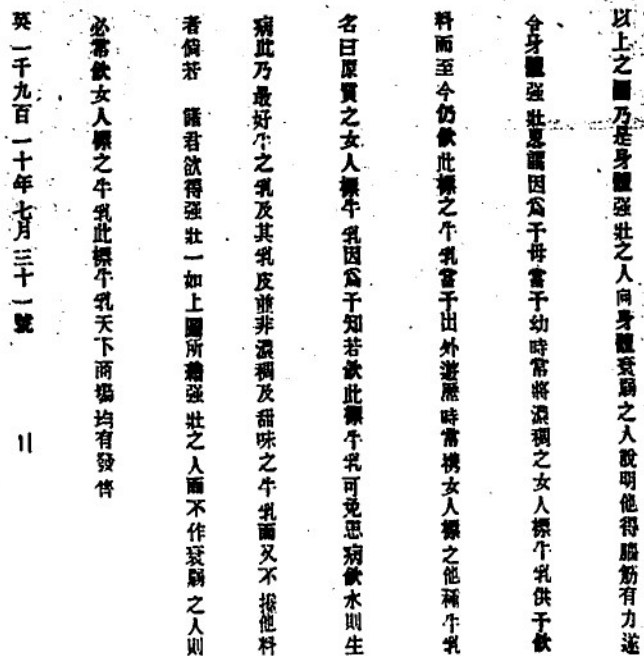 以上之圖乃是身體强壯之人向身體衰弱之人說明他得腦筋有力遂
令身體强壯思讀因爲予母當予幼時常將濃稠之女人標牛乳供予飲
料而至今仍飲此標之牛乳當予出外遊歷時常携女人標之他種牛乳
名曰原質之女人標牛乳因爲予知若飲此標牛乳可免患病飲水則生
病此乃最好牛之乳及其乳皮並非濃稠及甜味之牛乳而又不攙他料
者倘若 諸君欲得强壯一如上圖所繪强壯之人而不作衰弱之人則
必常飲女人標之牛乳此標牛乳天下商塲均有發售
英一千九百一十年七月三十一號 〢